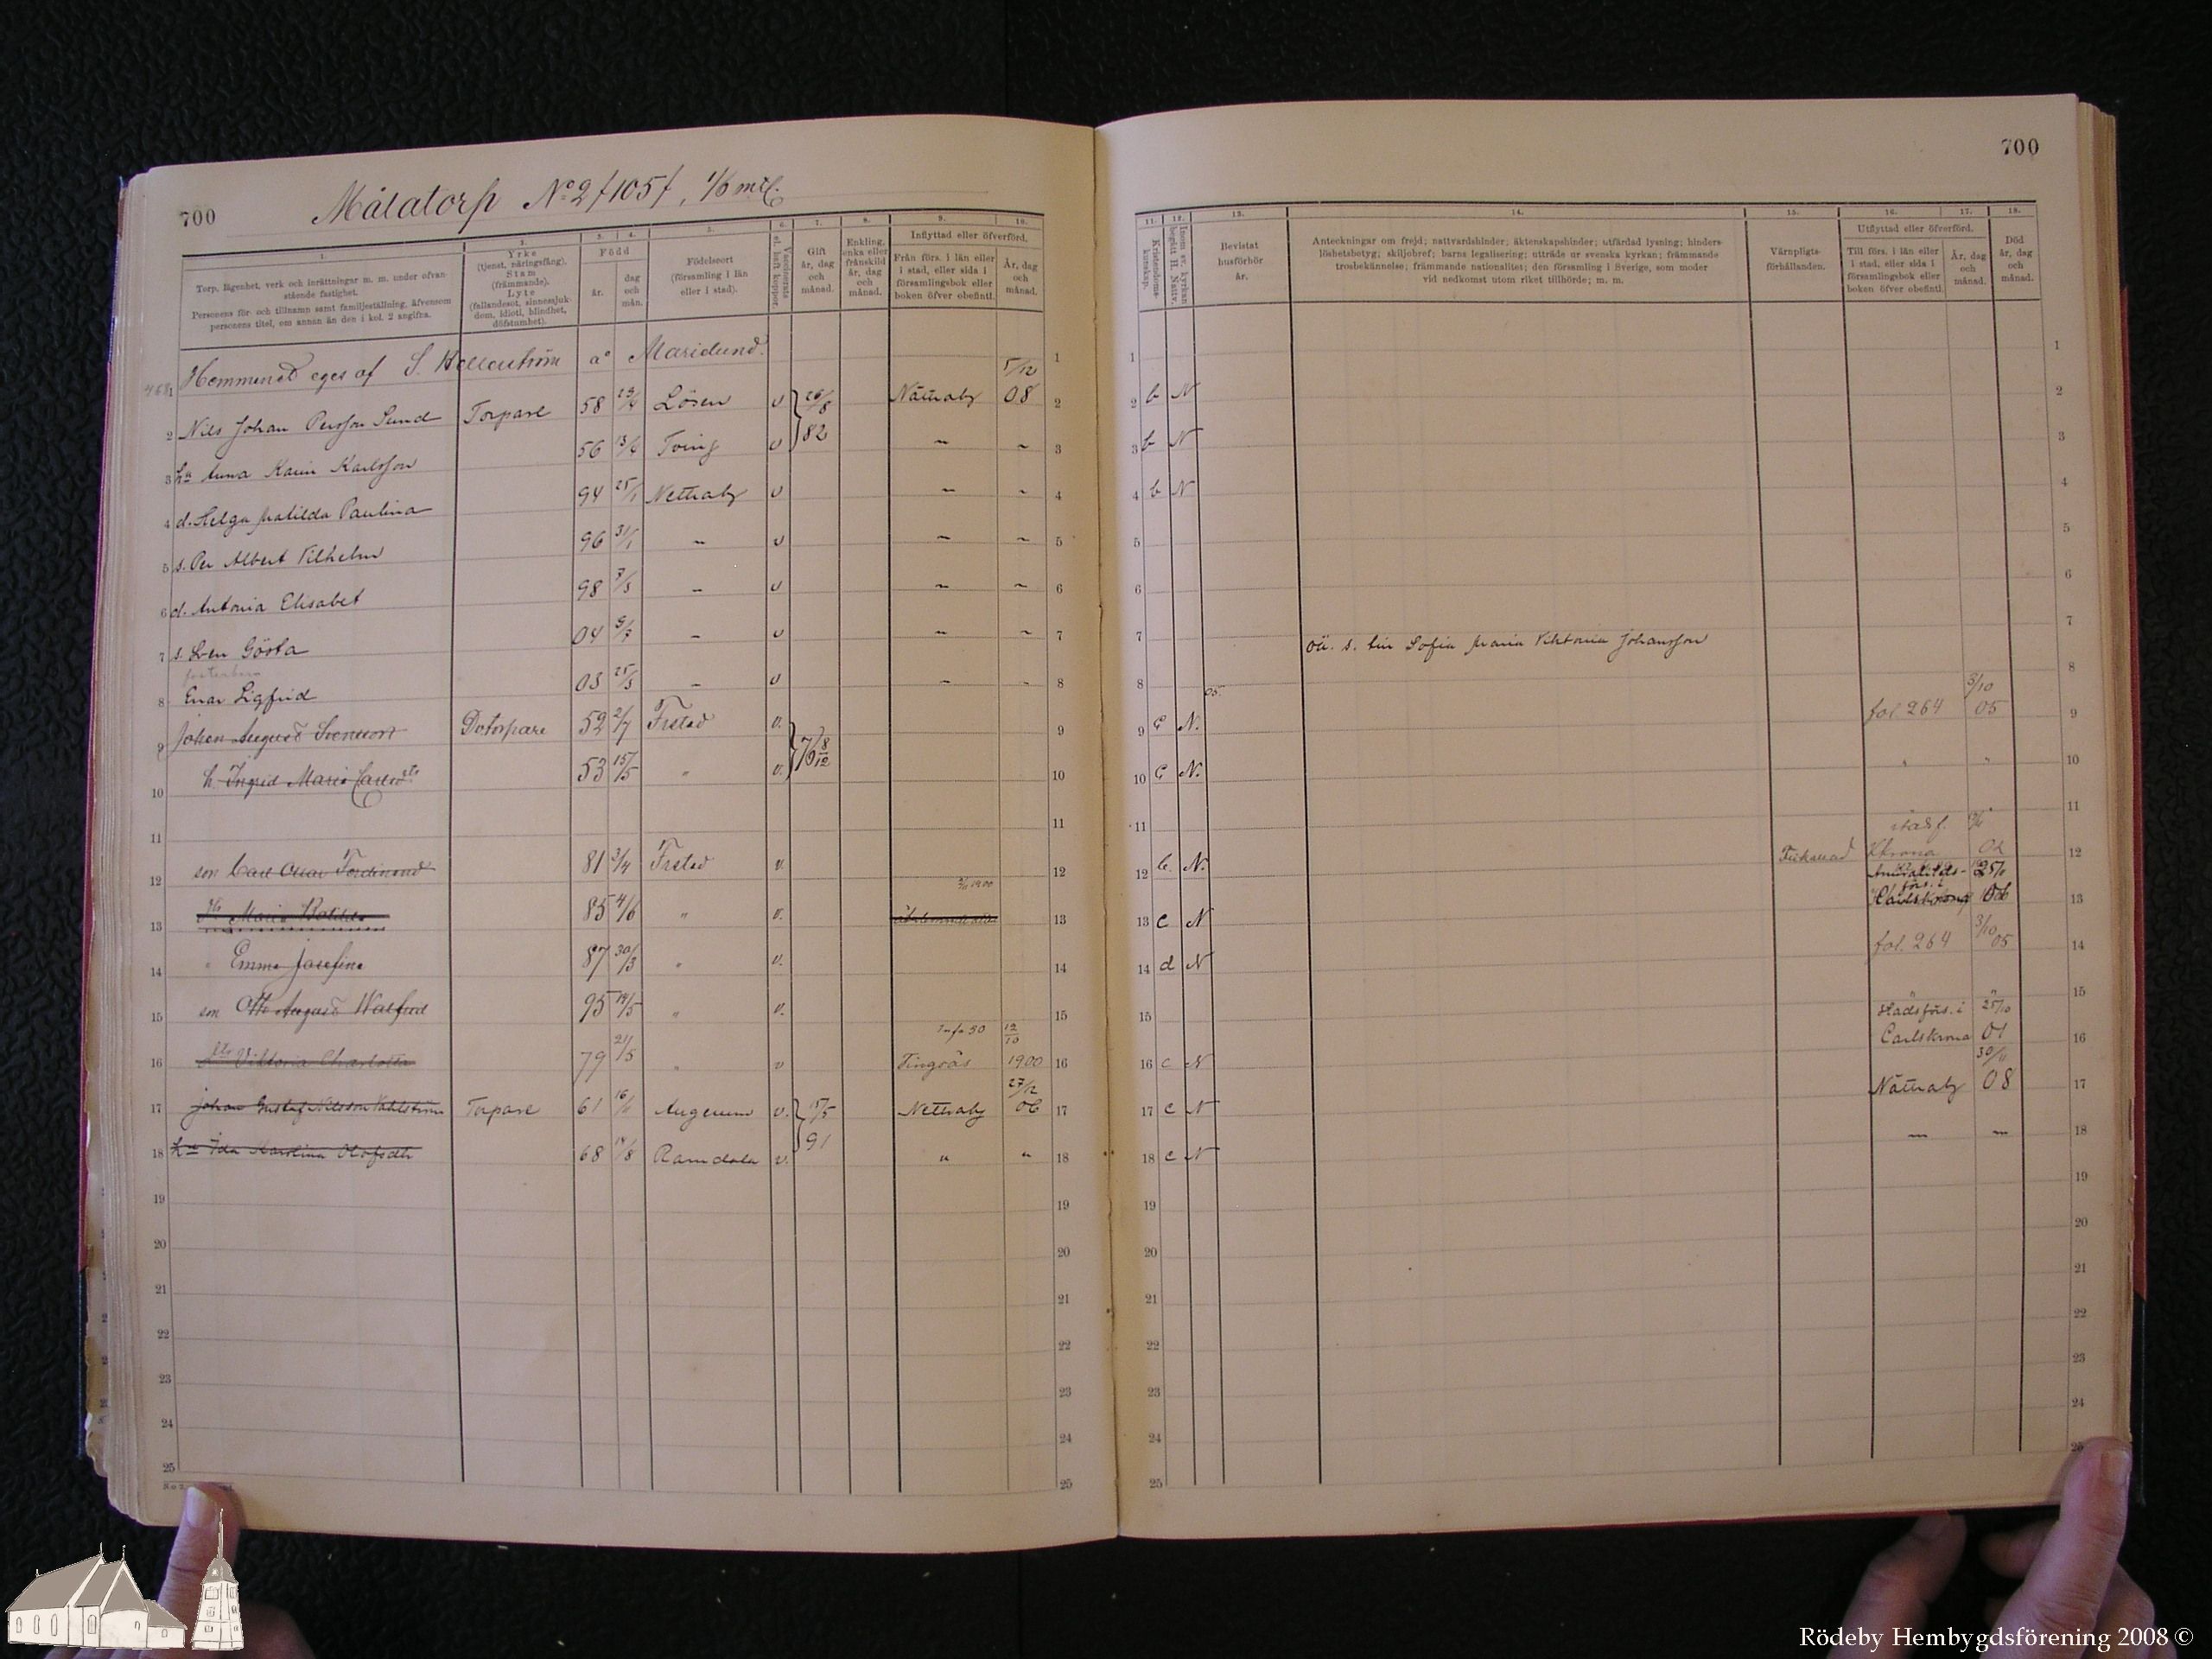 700
Målatorp No 2 /105/, 1/6 mtl.
700
1. 2. 3. 4. 5. 6. 7. 8. 9. 10.
Torp, lägenhet, verk och inrättningar m. m. under ofvanstående fastighet.
Personens för- och tillnamn samt familjeställning, äfvensom personens titel, om annan än den i kol. 2 angifna.
Yrke
(tjenst, näringsfång).
Stam
(främmande).
Lyte
(fallandesot, sinnessjukdom, idioti, blindhet, döfstumhet).
Född
år.
dag och mån.
Födelseort
(församling i län eller i stad).
Vaccinerats el. haft koppor.
Gift
år, dag och månad.
Enkling, enka eller frånskild
år, dag och månad.
Inflyttad eller öfverförd.
Från förs. i län eller i stad, eller sida i församlingsbok eller boken öfver obefintl.
År, dag och månad.
11. 12. 13. 14. 15. 16. 17. 18.
Kristendomskunskap.
Inom sv. kyrkan begått H. Nattv.
Bevistat husförhör
år.
Anteckningar om frejd; nattvardshinder; äktenskapshinder; utfärdad lysning; hinderslöshetsbetyg; skiljobref; barns legalisering; utträde ur svenska kyrkan; främmande trosbekännelse; främmande nationalitet; den församling i Sverige, som moder vid nedkomst utom riket tillhörde; m. m.
Värnpligtsförhållanden.
Utflyttad eller öfverförd.
Till förs. i län eller i stad, eller sida i församlingsbok eller boken öfver obefintl.
År, dag och månad.
Död
år, dag och månad.
Hemmanet eges af S. Hellerström a° Marielund. 1
2 Nils Johan Persson Sund Torpare 58 29/4 Lösen v 26/8 82 Nättraby 5/12 08 2 b N
3 hu Anna Karin Karlsson 56 13/4 Tving v " " 3 b N
4 d. Helga Matilda Paulina 94 25/1 Nettraby v " " 4 b N
5 s. Per Albert Vilhelm 96 31/1 " v " " 5
6 d. Antonia Elisabet 98 7/3 " v " " 6
7 s. Sven Gösta 04 5/7 " v " " 7 oä. s. till Sofia Maria Viktoria Johansson
fosterbarn
8 Enar Sigfrid 03 25/3 " v " " 8 05.
9 Johan August Svensson Dotorpare 52 2/7 Frstad v. 76 8/12 9 c N. fol. 264 3/10 05
10 h. Ingrid Maria Carlsdtr 53 15/5 " v. 10 c N. " "
11
12 son Carl Oscar Ferdinand 81 3/4 Frstad v. 12 b. N. Frikallad
13 Maria 85 4/6 " v. 13 c N
14 " Emma Josefina 87 30/3 " v. 14 d N fol. 264 3/10 05
15 son Otto August Walfrid 95 14/5 " v. 15
16 dtr Viktoria Charlotta 79 21/5 " v Tingsås 12/10 1900 16 c N Stadsförs. i Carlskrona 25/10 01
17 Johan Gustaf Nilsson Wahlström Torpare 61 16/1 Augerum v. 15/5 91 Nettraby 27/12 06 17 c N Nättraby 30/11 08
18 hu Ida Karolina Olofsdtr 68 14/8 Ramdala v. " " 18 c N " "
19
20
21
22
23
24
25
Rödeby Hembygdsförening 2008 ©